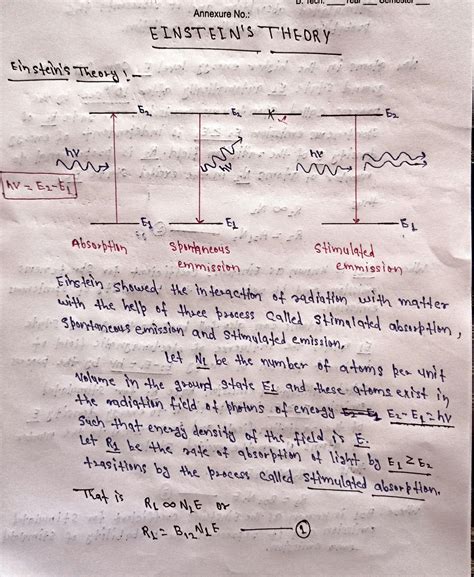 D. Tech. ___ Year ___ Semester ___
Annexure No.:
EINSTEIN'S THEORY
Einstein's Theory :-
E2 E2 E2
hν hν hν
hν = E2-E1
E1 E1 E1
Absorption Spontaneous emmission Stimulated emmission
Einstein showed the interaction of radiation with matter
with the help of three process called stimulated absorption,
spontaneous emission and stimulated emission.
Let N1 be the number of atoms per unit
volume in the ground state E1 and these atoms exist in
the radiation field of photons of energy E2-E1=hν
such that energy density of the field is E.
Let R1 be the rate of absorption of light by E1 E2
trasitions by the process called stimulated absorption.
That is R1 ∝ N1E or
R1 = B12N1E 1